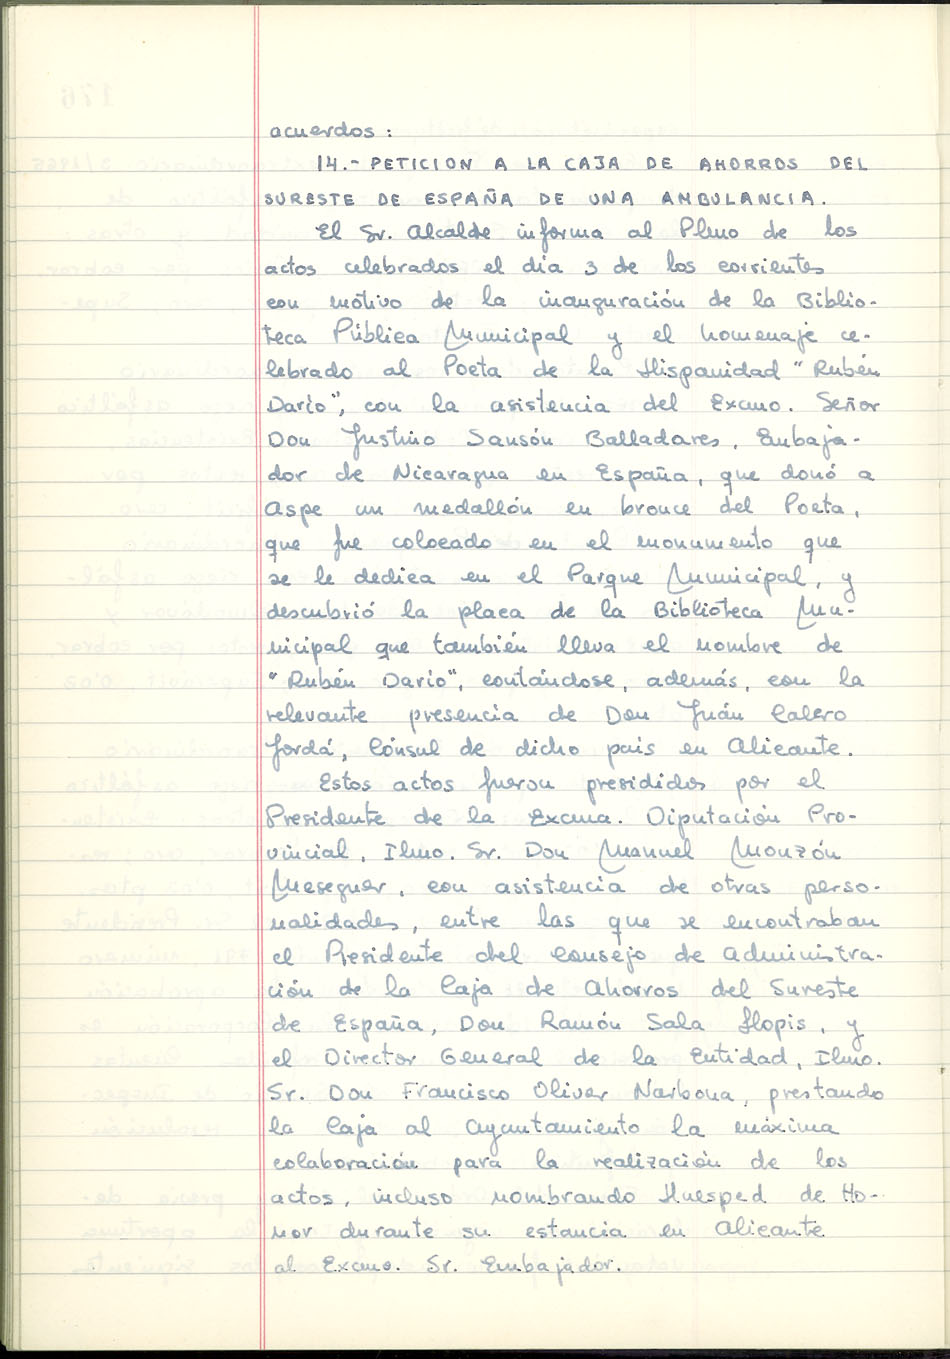 acuerdos :
14.- PETICION A LA CAJA DE AHORROS DEL
SURESTE DE ESPAÑA DE UNA AMBULANCIA.
El Sr. Alcalde informa al Pleno de los
actos celebrados el día 3 de los corrientes
con motivo de la inauguración de la Biblio-
teca Pública Municipal y el homenaje ce-
lebrado al Poeta de la Hispanidad "Rubén
Darío", con la asistencia del Excmo. Señor
Don Justino Sansón Balladares, Embaja-
dor de Nicaragua en España, que donó a
Aspe un medallón en bronce del Poeta,
que fue colocado en el monumento que
se le dedica en el Parque Municipal, y
descubrió la placa de la Biblioteca Mu-
nicipal que también lleva el nombre de
"Rubén Darío", contándose, además, con la
relevante presencia de Don Juán Calero
Jordá, Cónsul de dicho país en Alicante.
Estos actos fueron presididos por el
Presidente de la Excma. Diputación Pro-
vincial, Ilmo. Sr. Don Manuel Monzón
Meseguer, con asistencia de otras perso-
nalidades, entre las que se encontraban
el Presidente del Consejo de Administra-
ción de la Caja de Ahorros del Sureste
de España, Don Ramón Sala Llopis, y
el Director General de la Entidad, Ilmo.
Sr. Don Francisco Oliver Narbona, prestando
la Caja al Ayuntamiento la máxima
colaboración para la realización de los
actos, incluso nombrando Huesped de Ho-
nor durante su estancia en Alicante
al Excmo. Sr. Embajador.